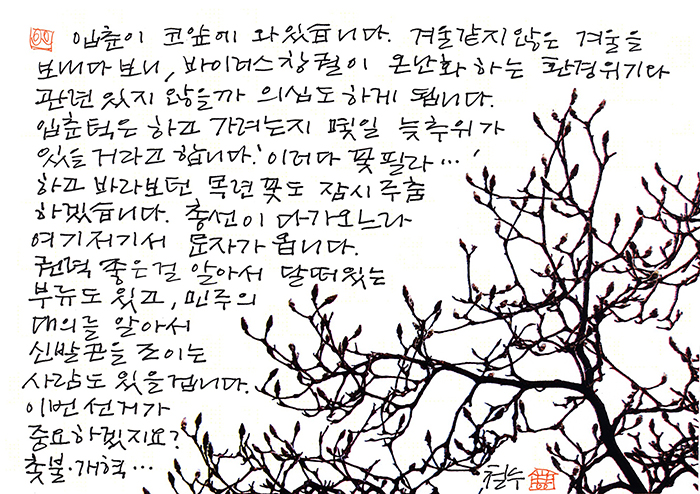 입춘이 코앞에 와있습니다. 겨울같지않은 겨울을
보내다보니, 바이러스창궐이 온난화하는 환경위기와
관련있지 않을까 의심도하게 됩니다.
입춘턱은 하고 가려는지 몇일 늦추위가
있을거라고 합니다. '이러다 꽃필라…'
하고 바라보던 목련꽃도 잠시주춤
하겠습니다. 총선이 다가오느라
여기저기서 문자가 옵니다.
권력 좋은걸 알아서 달떠있는
부류도 있고, 민주의
대의를 알아서
신발끈을 조이는
사람도 있을겁니다.
이번선거가
중요하겠지요?
촛불·개혁…
철수